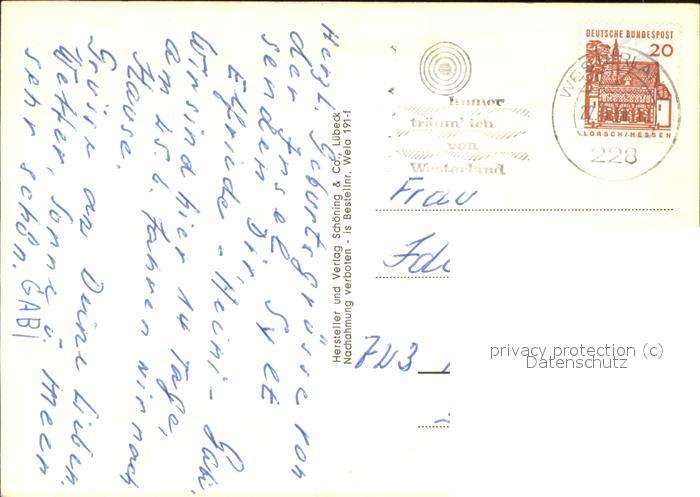 Herzl. Geburtsgrüsse von
der Insel Sylt
senden Dir,
Elfriede - Heini - Gabi.
Wir sind hier 14 Tage,
am 25.6. fahren wir nach
Hause.
Grüsse an Deine Lieben
Wetter, Sonne u. Meer
sehr schön. GABI
Hersteller und Verlag Schöning & Co., Lübeck
Nachahmung verboten - is Bestellnr. Wela 191-f
Immer
träum' ich
von
Westerland
DEUTSCHE BUNDESPOST
20
LORSCH/HESSEN
WESTERLAND
228
Frau
723
privacy protection (c)
Datenschutz